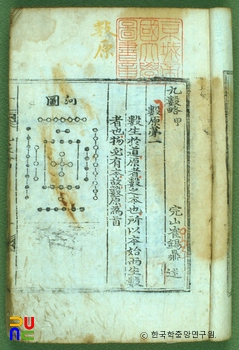 京城帝
國大學
圖書章
數原
九數略 甲
完山 崔錫鼎 述
數原第一
數生於道原者數之本也所以本始而生數
者也物必有本故數原為首
河圖
한국학중앙연구원